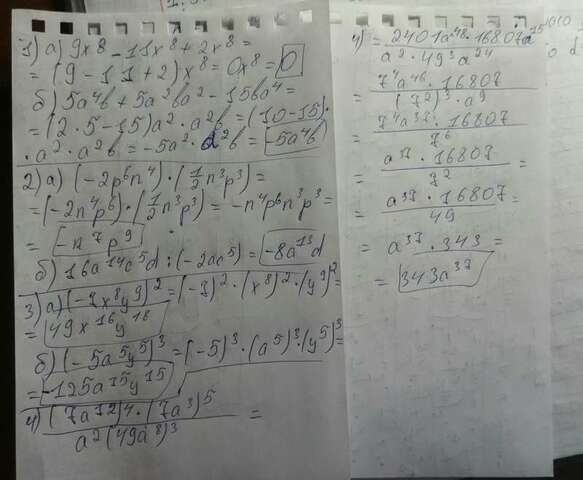 1) а) 9x⁸ - 11x⁸ + 2x⁸ =
= (9 - 11 + 2)x⁸ = 0x⁸ = 0
б) 5a⁴b + 5a²ba² - 15ba⁴ =
= (2 · 5 - 15)a² · a²b = (10 - 15) ·
· a² · a²b = -5a² · a²b = -5a⁴b
2) а) (-2p⁶n⁴) · (1/2 n³p³) =
= (-2n⁴p⁶) · (1/2 n³p³) = -n⁴p⁶n³p³ =
= -n⁷p⁹
б) 16a¹⁴c⁵d : (-2ac⁵) = -8a¹³d
3) а) (-7x⁸y⁹)² = (-7)² · (x⁸)² · (y⁹)² =
= 49x¹⁶y¹⁸
б) (-5a⁵y⁵)³ = (-5)³ · (a⁵)³ · (y⁵)³ =
= -125a¹⁵y¹⁵
4) (7a¹²)⁴ · (7a³)⁵ / a²(49a⁸)³ =
4) = 2401a⁴⁸ · 16807a¹⁵ / a² · 49³a²⁴
= 7⁴a⁴⁶ · 16807 / (7²)³ · a⁹
= 7⁴a³⁷ · 16807 / 7⁶
= a³⁷ · 16807 / 7² =
= a³⁷ · 16807 / 49 =
= a³⁷ · 343 =
= 343a³⁷